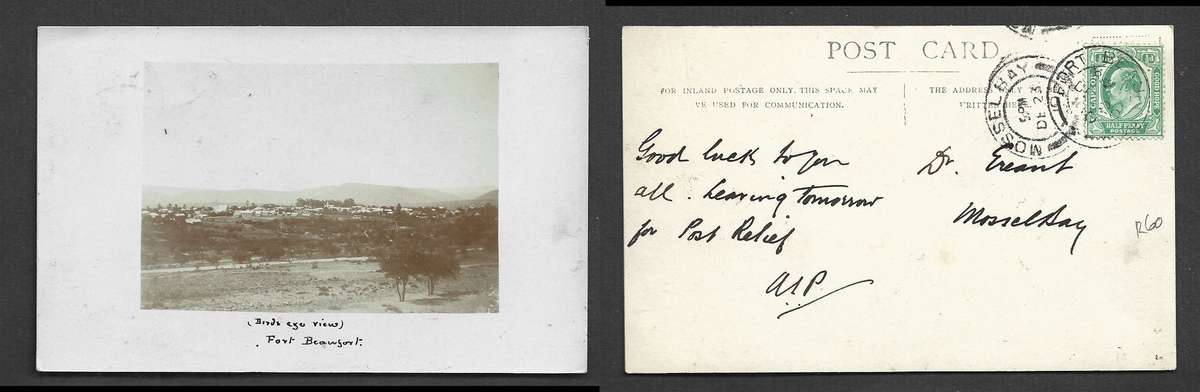 (Birds eye view)
Fort Beaufort.
POST CARD
FOR INLAND POSTAGE ONLY, THIS SPACE MAY
BE USED FOR COMMUNICATION.
THE ADDRESS
MOSSEL BAY
5 PM
DE 23
FORT B
CAPE OF GOOD HOPE
HALFPENNY
POSTAGE
Good luck to you
all. Leaving tomorrow
for Post Relief
Dr.
Mossel Bay
R60